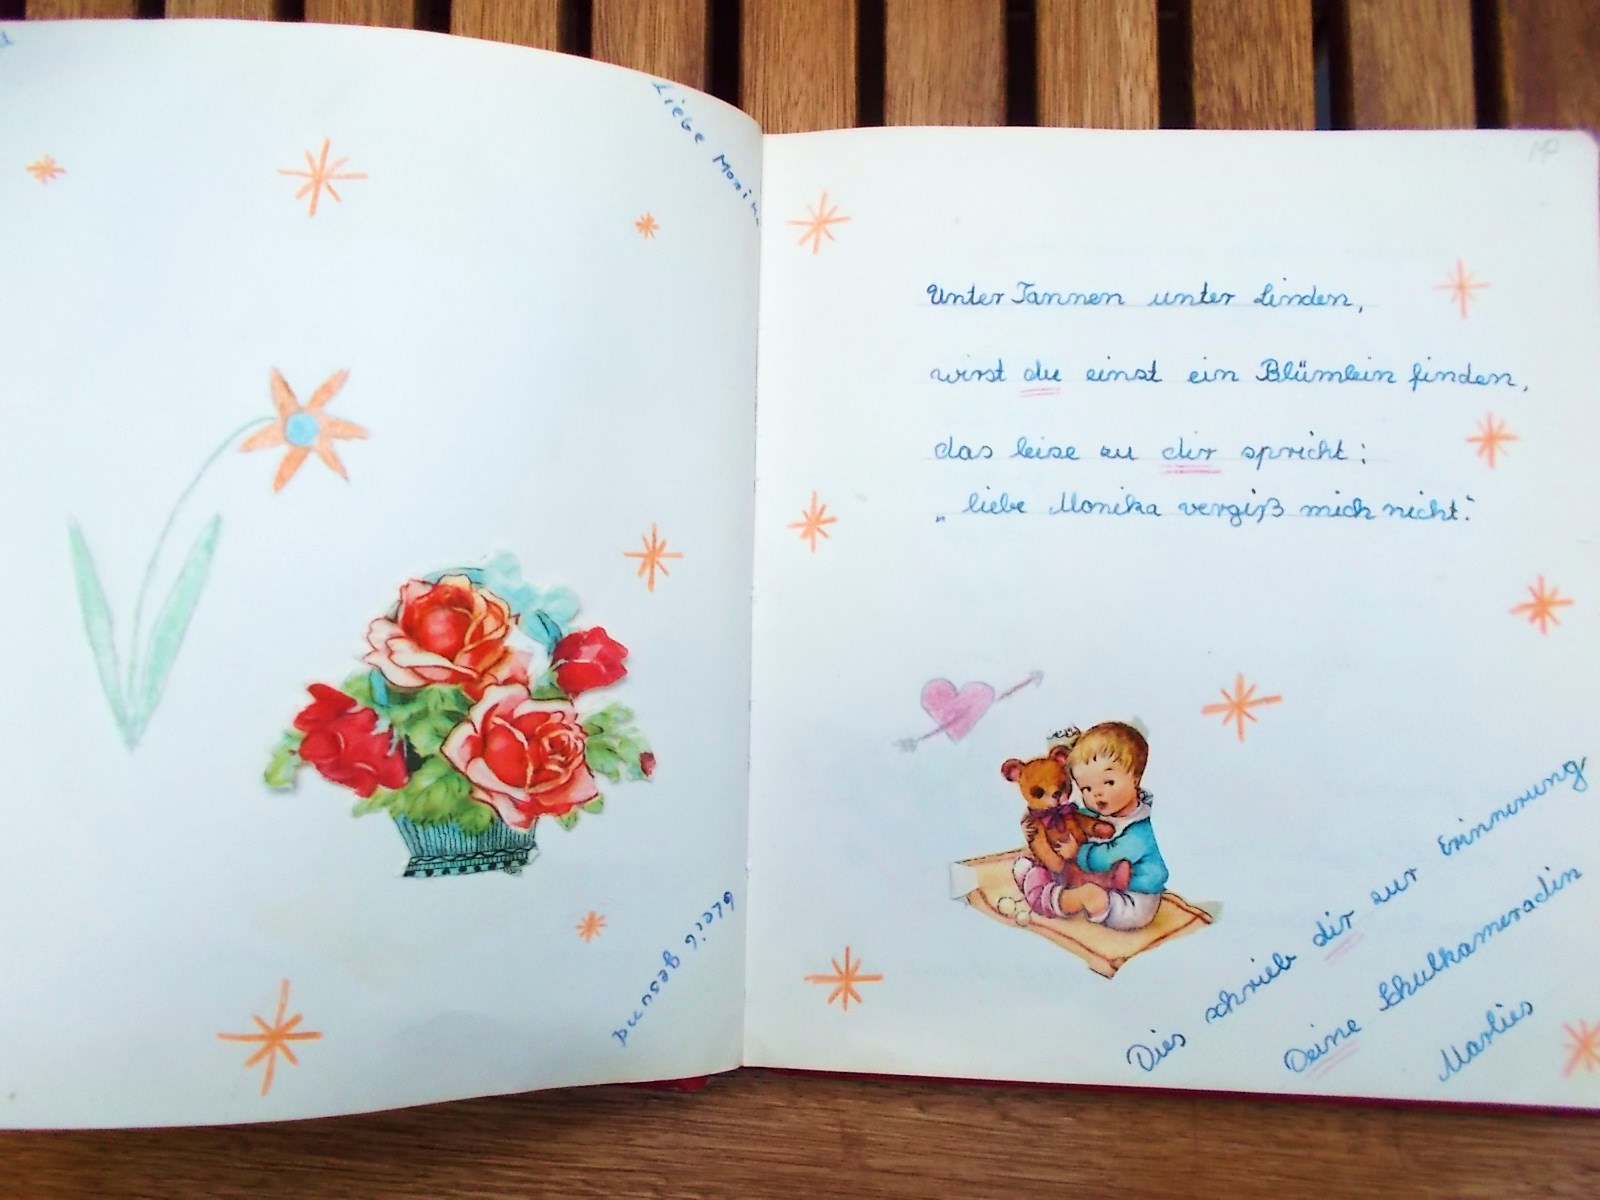 Liebe Monika
bleib gesund
Unter Tannen unter Linden,
wirst du einst ein Blümlein finden,
das leise zu dir spricht:
„liebe Monika vergiß mich nicht."
Dies schrieb dir zur Erinnerung
Deine Schulkameradin
Marlies